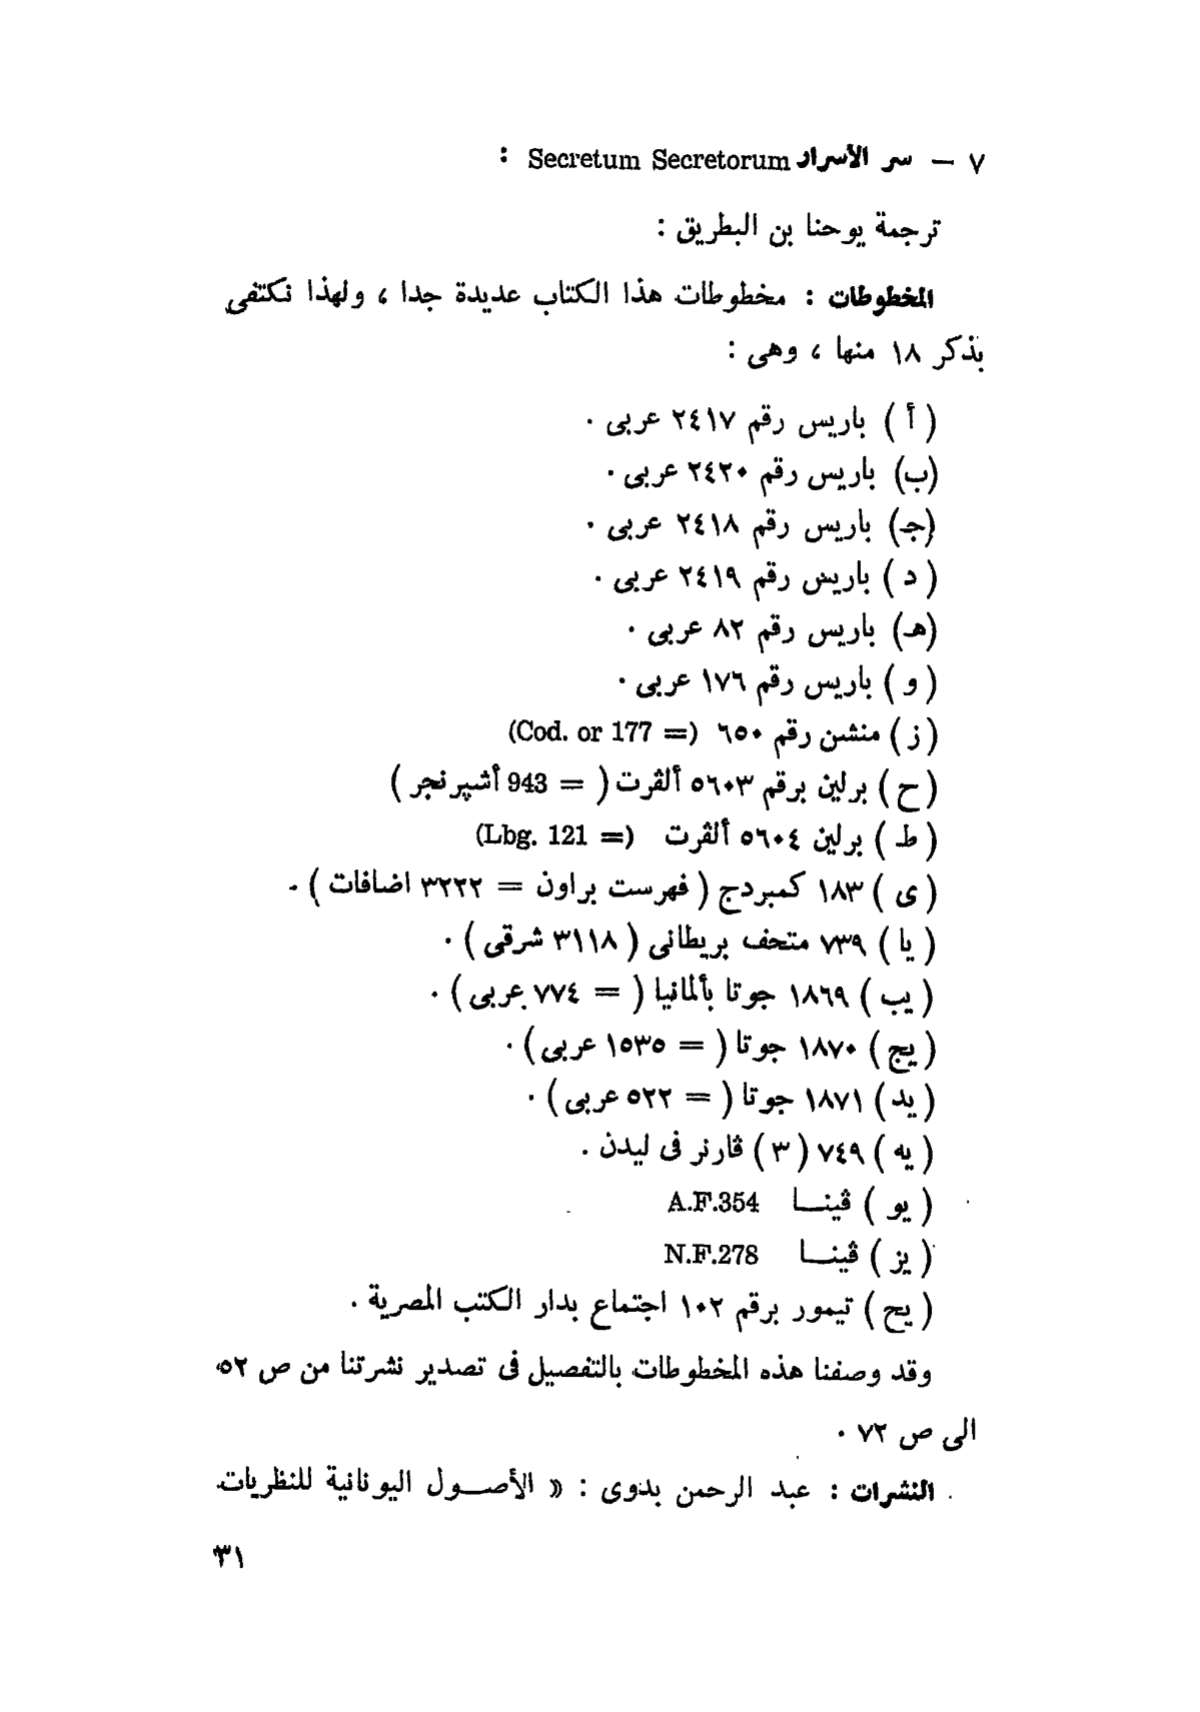 ٧ — سر الأسرار Secretum Secretorum :
ترجمة يوحنا بن البطريق :
المخطوطات : مخطوطات هذا الكتاب عديدة جدا ، ولهذا نكتفى
بذكر ١٨ منها ، وهى :
( أ ) باريس رقم ٢٤١٧ عربى .
(ب) باريس رقم ٢٤٢٠ عربى .
(جـ) باريس رقم ٢٤١٨ عربى .
( د ) باريس رقم ٢٤١٩ عربى .
(هـ) باريس رقم ٨٢ عربى .
( و ) باريس رقم ١٧٦ عربى .
( ز ) منشن رقم ٦٥٠ (= Cod. or 177)
( ح ) برلين برقم ٥٦٠٣ ألڤرت ( = 943 أشپرنجر )
( ط ) برلين ٥٦٠٤ ألڤرت (= Lbg. 121)
( ى ) ١٨٣ كمبردج ( فهرست براون = ٣٢٢٢ اضافات ) .
( يا ) ٧٣٩ متحف بريطانى ( ٣١١٨ شرقى ) .
( يب ) ١٨٦٩ جوتا بألمانيا ( = ٧٧٤ عربى ) .
( يج ) ١٨٧٠ جوتا ( = ١٥٣٥ عربى ) .
( يد ) ١٨٧١ جوتا ( = ٥٢٢ عربى ) .
( يه ) ٧٤٩ ( ٣ ) ڤارنر فى ليدن .
( يو ) ڤينــا A.F.354
( يز ) ڤينــا N.F.278
( يح ) تيمور برقم ١٠٢ اجتماع بدار الكتب المصرية .
وقد وصفنا هذه المخطوطات بالتفصيل فى تصدير نشرتنا من ص ٥٢
الى ص ٧٢ .
النشرات : عبد الرحمن بدوى : « الأصــول اليونانية للنظريات
٣١